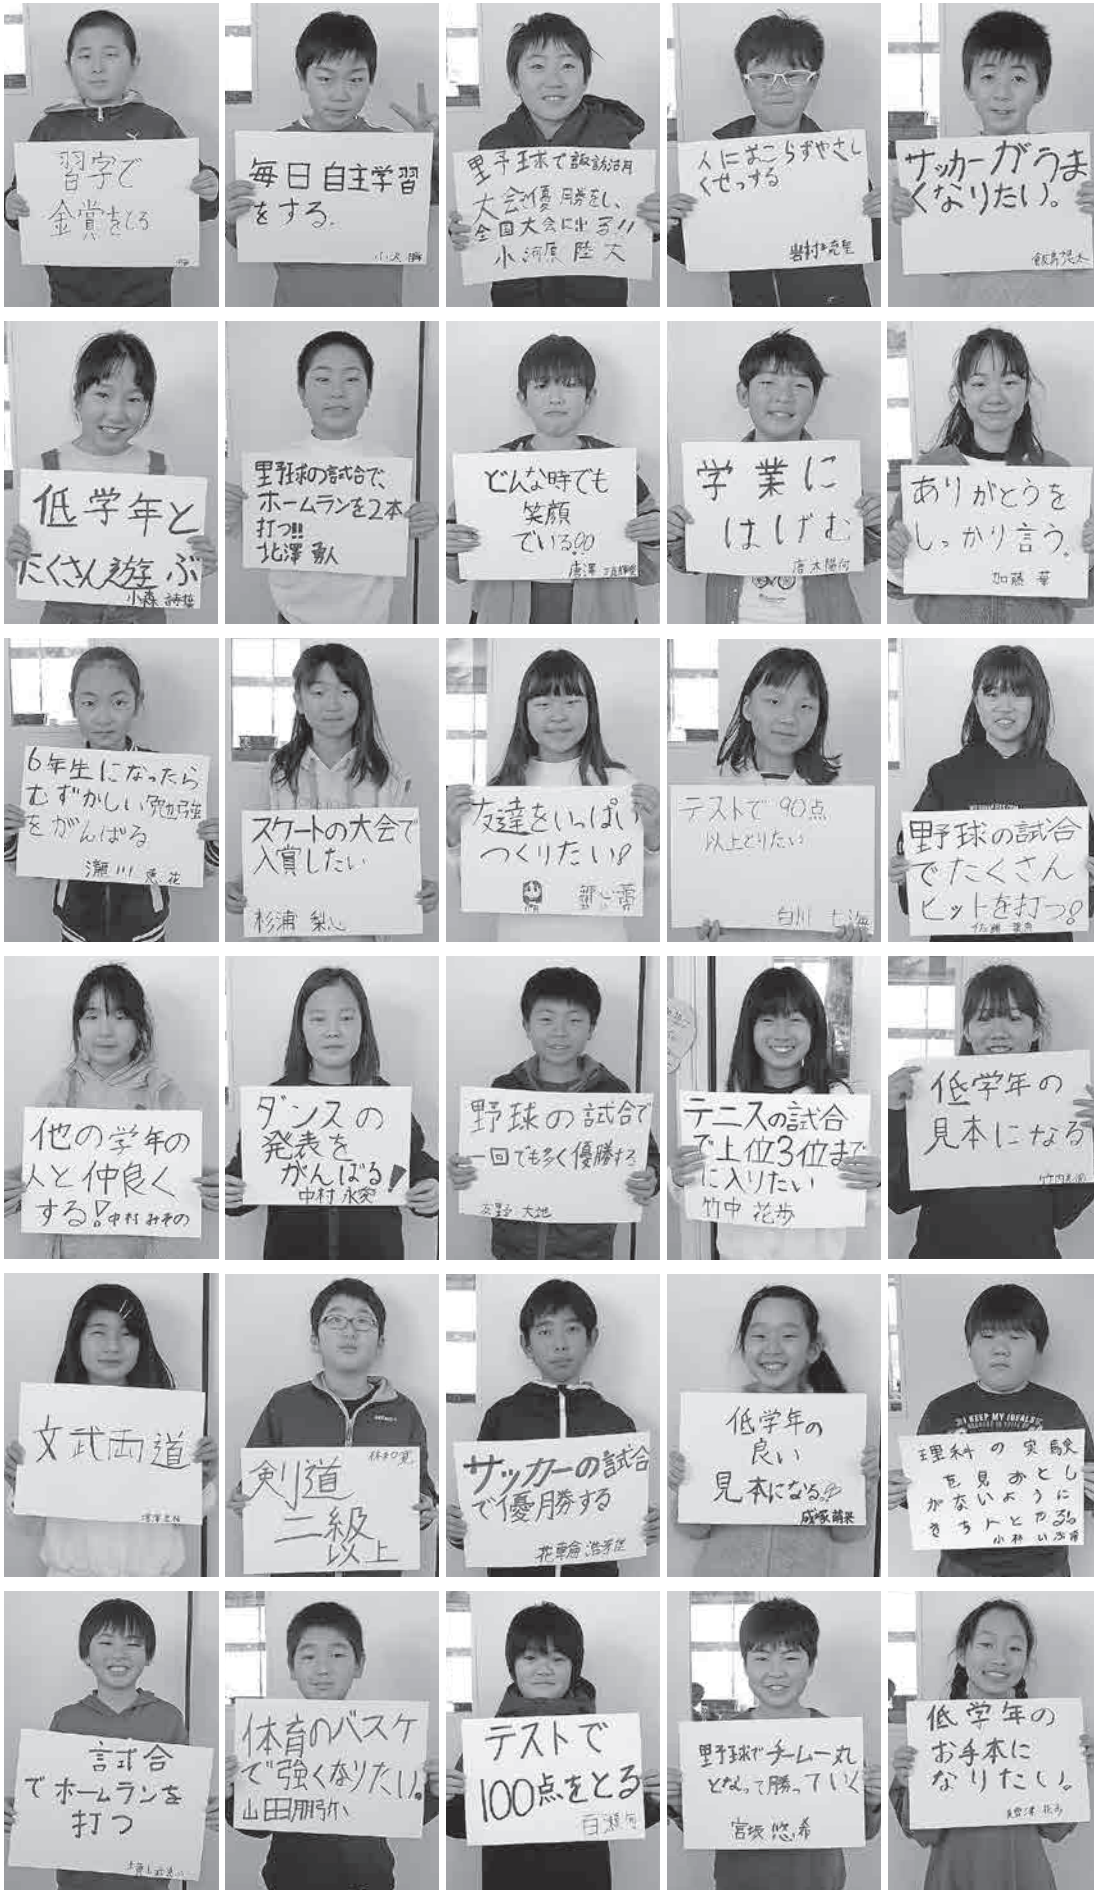 習字で
金賞をとる
毎日自主学習
をする.
野球で諏訪湖
大会優勝をし、
全国大会に出る!!
小河原 陸大
人におこらずやさし
くせっする
サッカーがうま
くなりたい。
低学年と
たくさん遊ぶ
野球の試合で、
ホームランを2本
打つ!!
北澤 勇人
どんな時でも
笑顔
でいる
唐澤
学業に
はげむ
唐木陽向
ありがとうを
しっかり言う。
加藤 華
6年生になったら
むずかしい勉強
をがんばる
瀬川
スケートの大会で
入賞したい
杉浦 梨心
友達をいっぱい
つくりたい!
テストで 90点
以上とりたい
白川 七海
野球の試合
でたくさん
ヒットを打つ!
他の学年の
人と仲良く
する! 中村 みその
ダンスの
発表を
がんばる!
中村
野球の試合で
一回でも多く優勝する
友野 大地
テニスの試合
で上位3位まで
に入りたい
竹中 花歩
低学年の
見本になる
文武両道
剣道
二級
以上
サッカーの試合
で優勝する
低学年の
良い
見本になる
成塚 萌
KEEP MY IDEALS
理科の実験
を見おとし
がないように
きちんとやる。
小林
試合
でホームランを
打つ
体育のバスケ
で強くなりたい。
山田朋弥
テストで
100点をとる
百瀬
野球でチーム一丸
となって勝っていく
宮坂 悠希
低学年の
お手本に
なりたい。